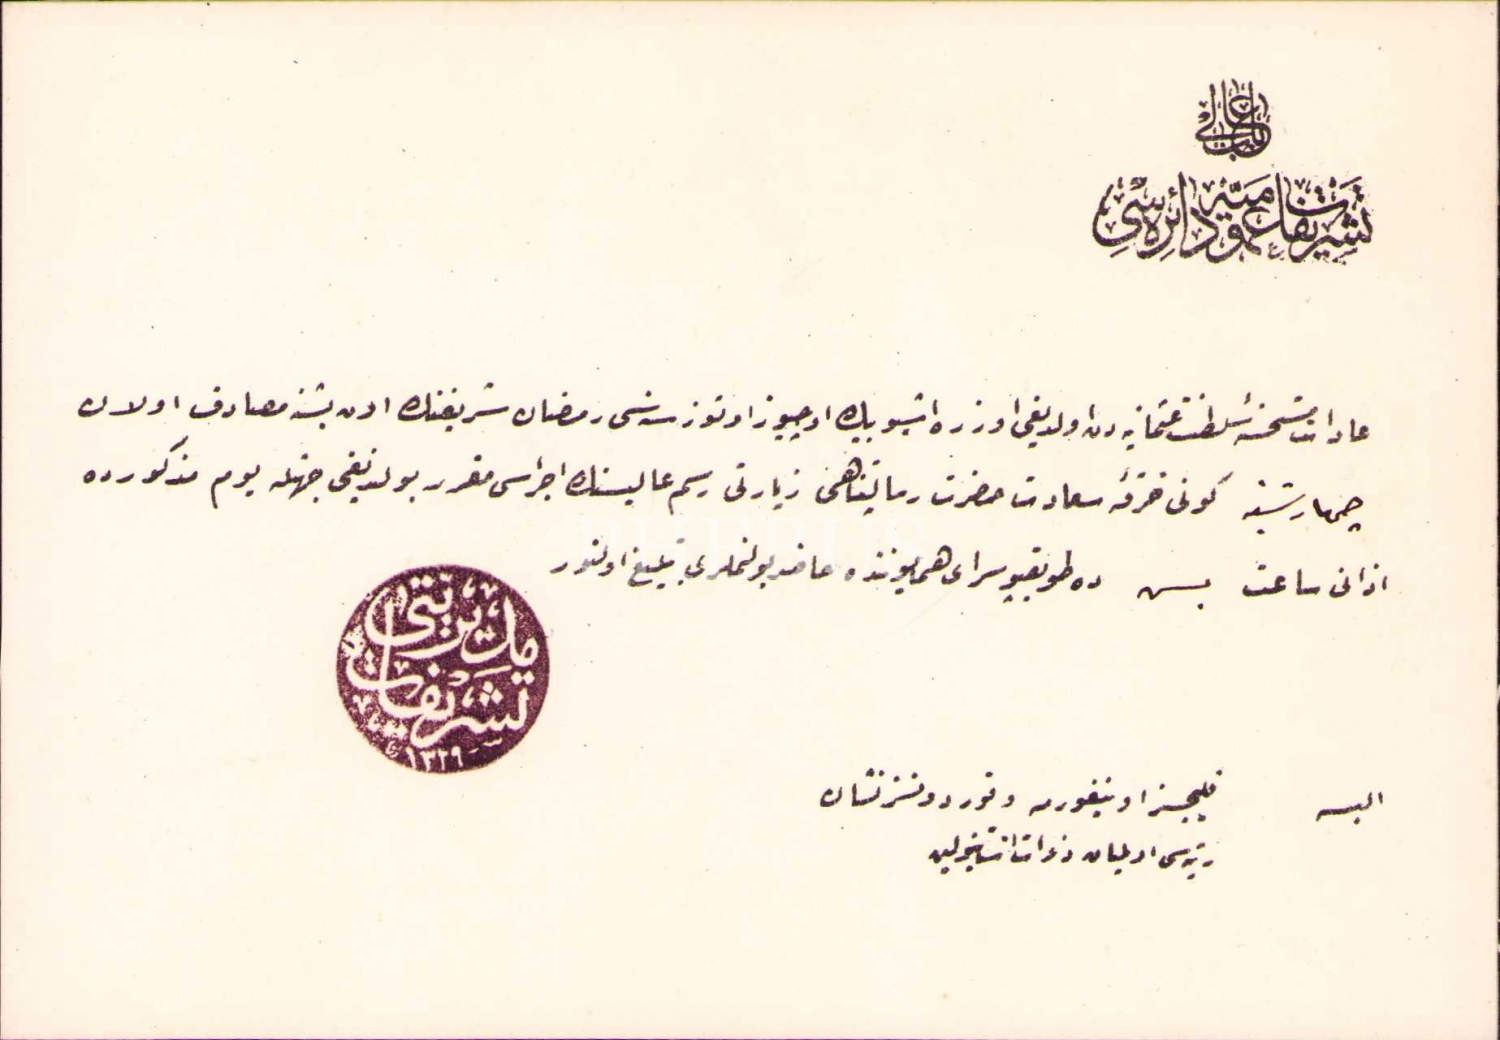 باب عالی
تشریفات عمومیه دائره سی
عادات مستحسنهٔ سلطنت عثمانیه دن اولدیغی اوزره اشبو بیك اوچیوز اوتوز سنه سی رمضان شریفنك اون بشنه مصادف اولان
چهارشنبه كونی خرقهٔ سعادت حضرت رسالتپناهی زیارتی رسم عالیسنك اجراسی مقرر بولندیغی جهتله یوم مذكورده
اذانی ساعت بش ده طوپقپو سرای همایوننده حاضر بولنملری تبلیغ اولنور
مدیریتی
تشریفات
١٣٢٩
البسه
قلیجسز اونیفورمه و قوردونسز نشان
رتبه سی اولمیان ذوات استانبولین
PHEBUS